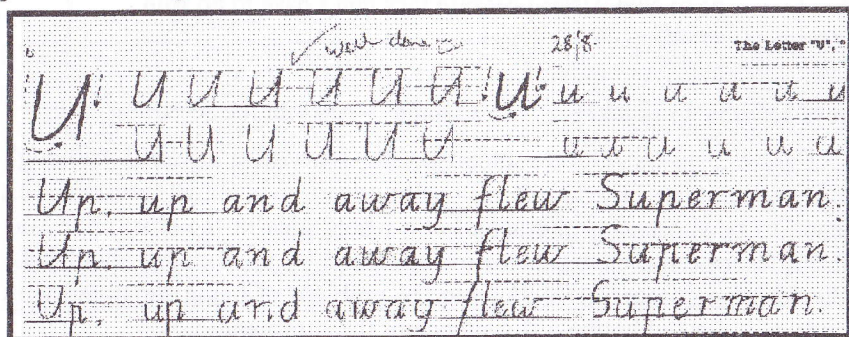 ✓ Well done 28/8 The Letter "U", "
U U U U U U U U u u u u u u
U U U U U U u u u u u u
Up, up and away flew Superman.
Up, up and away flew Superman.
Up, up and away flew Superman.